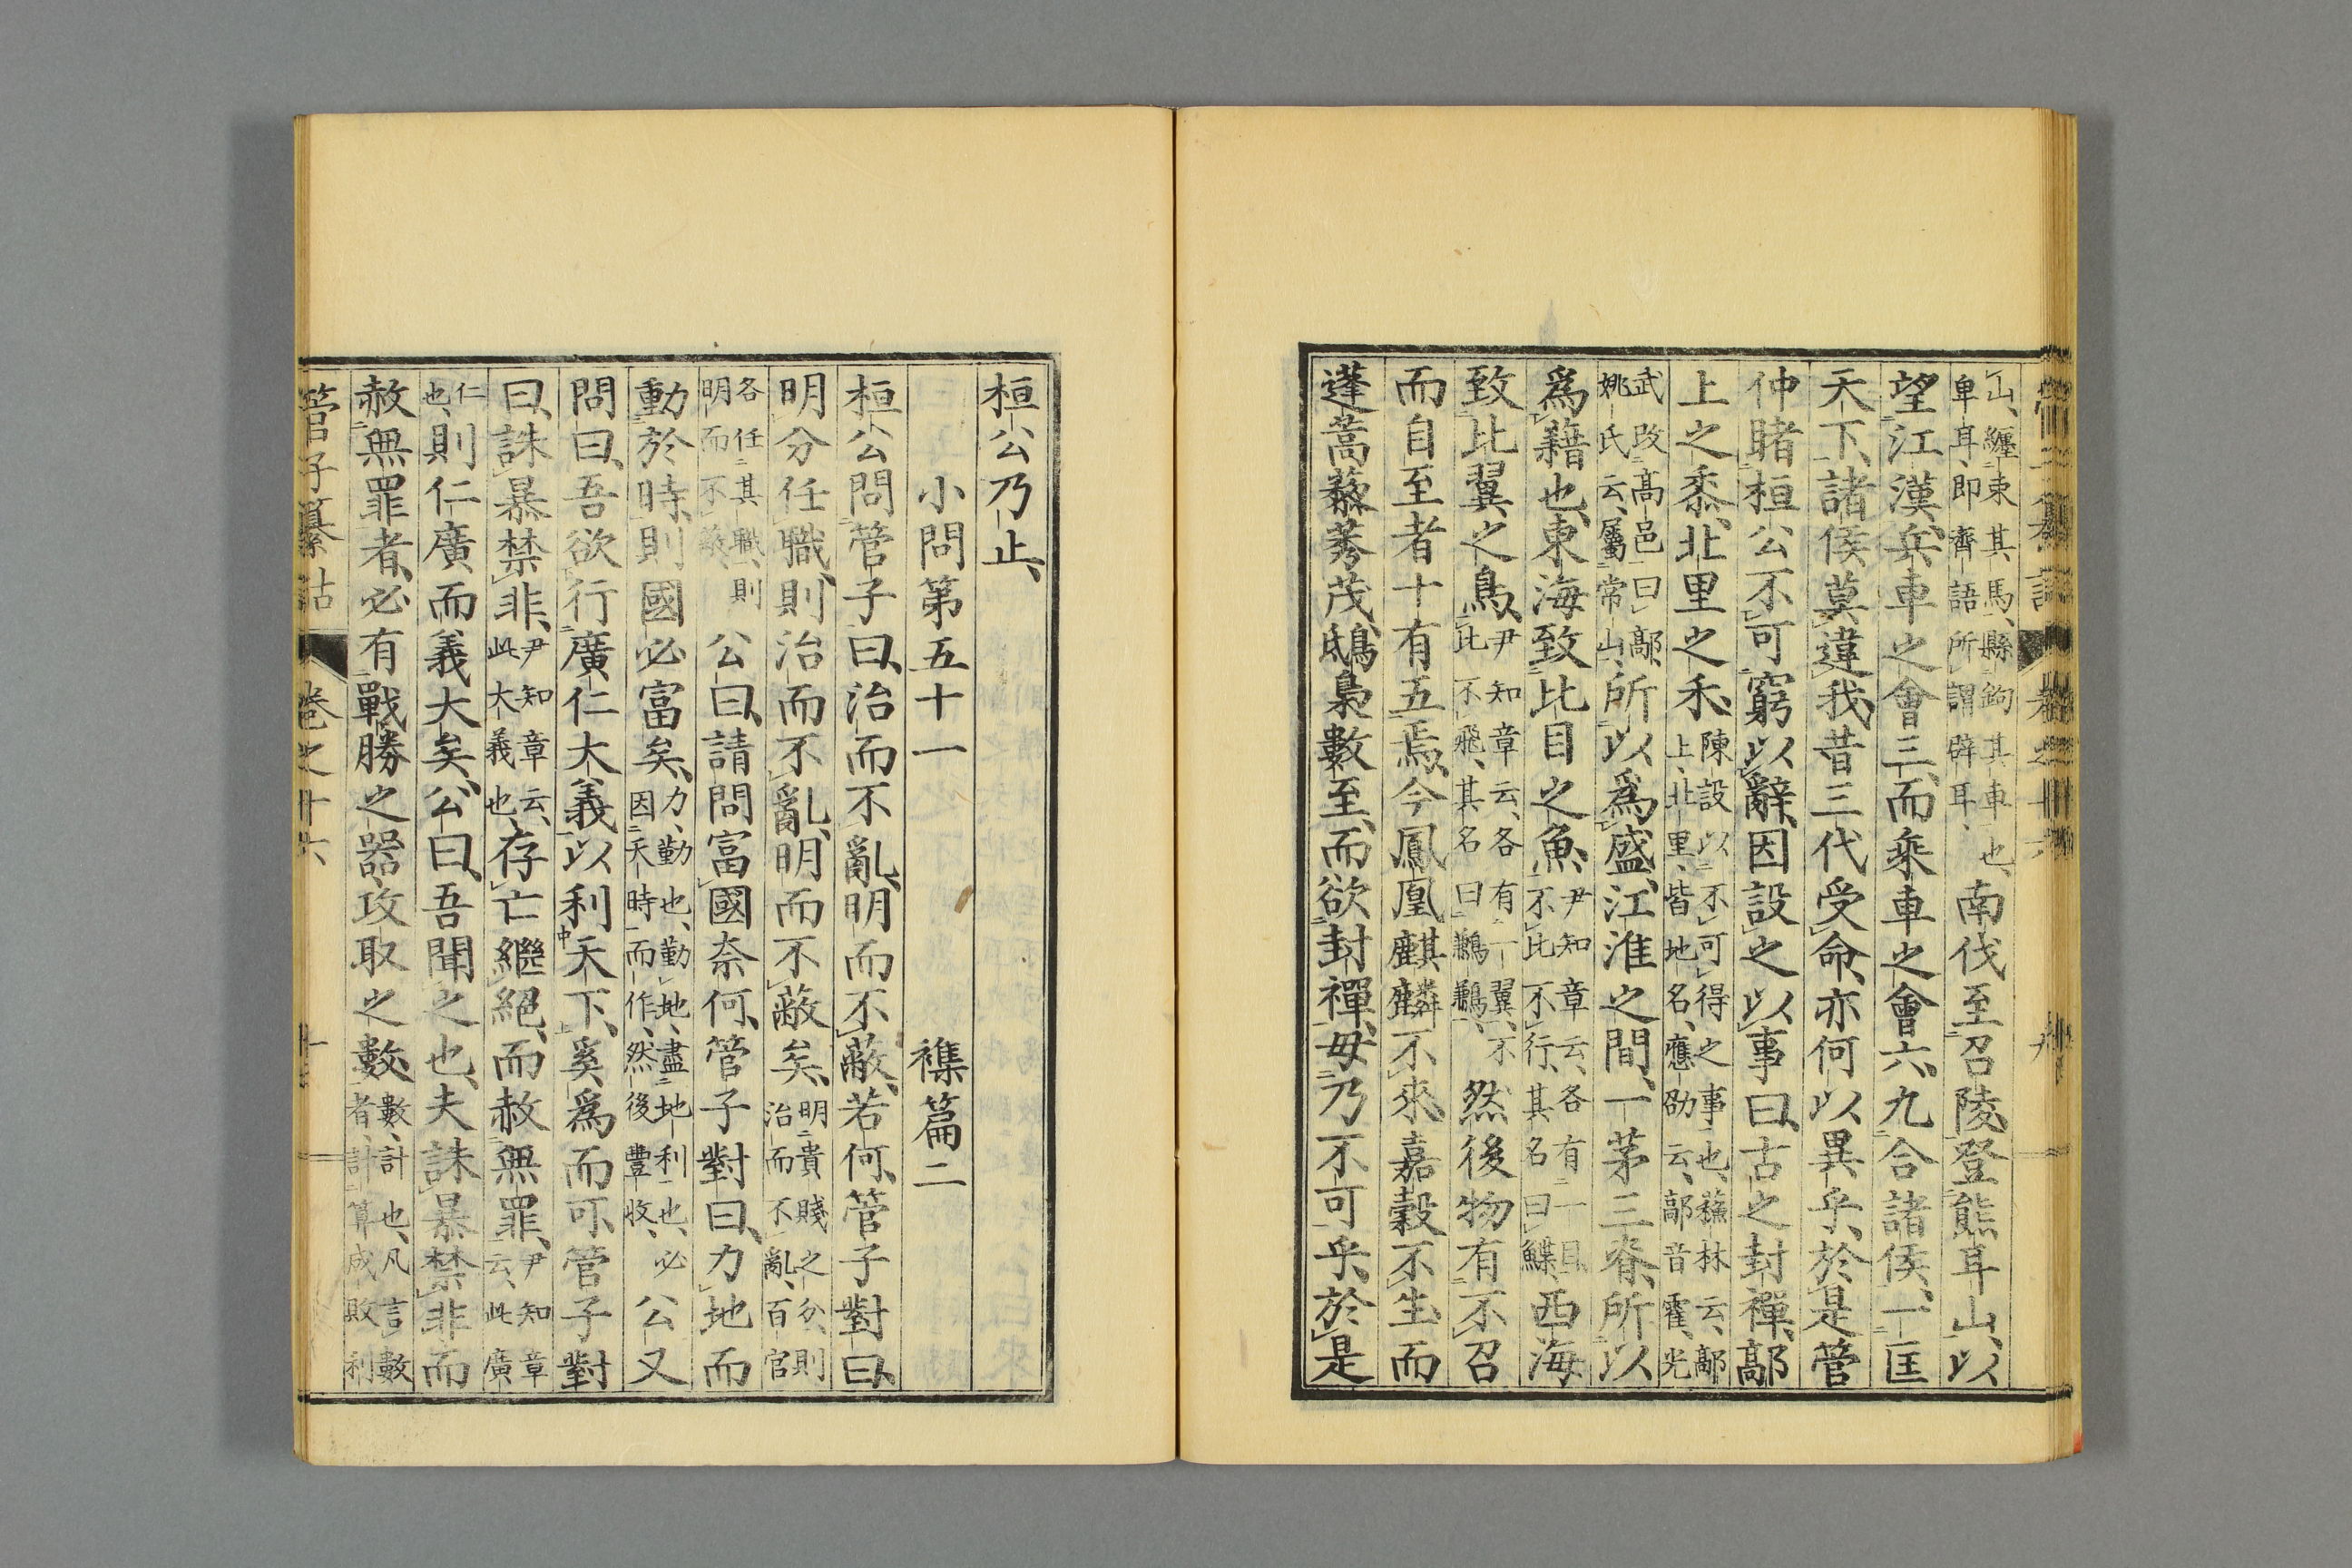 山、纏束其馬、縣鉤其車也、
卑耳、即齊語所謂辟耳、南伐至召陵登熊耳山、以
望江漢、兵車之會三、而乘車之會六、九合諸侯、一匡
天下、諸侯莫違我、昔三代受命、亦何以異乎、於是管
仲睹桓公不可窮以辭、因設之以事曰、古之封禪、鄗
上之黍、北里之禾、陳設以不可得之事也、蘇林云、鄗
上、北里、皆地名、應劭云、鄗音霍、光
武改高邑曰鄗、
姚氏云、屬常山、所以爲盛、江淮之間、一茅三脊、所以
爲藉也、東海致比目之魚、尹知章云、各有一目、
不比不行、其名曰鰈、西海
致比翼之鳥、尹知章云、各有一翼、不
比不飛、其名曰鶼鶼、然後物有不召
而自至者十有五焉、今鳳凰麒麟不來、嘉穀不生、而
蓬蒿藜莠茂、鴟梟數至、而欲封禪、毋乃不可乎、於是
管子纂詁 卷之十六
桓公乃止、
小問第五十一 襍篇二
桓公問管子曰、治而不亂、明而不蔽、若何、管子對曰、
明分任職、則治而不亂、明而不蔽矣、明貴賤之分、則
治而不亂、百官
各任其職、則
明而不蔽、公曰、請問富國奈何、管子對曰、力地而
動於時、則國必富矣、力、勤也、勤地、盡地利也、必
因天時而作、然後豐收、公又
問曰、吾欲行廣仁大義、以利天下、奚爲而可、管子對
曰、誅暴禁非、尹知章云、
此大義也、存亡繼絕、而赦無罪、尹知章
云、此廣
仁
也、則仁廣而義大矣、公曰、吾聞之也、夫誅暴禁非而
赦無罪者、必有戰勝之器、攻取之數、數、計也、凡言數
者、計算成敗利
管子纂詁 卷之十六